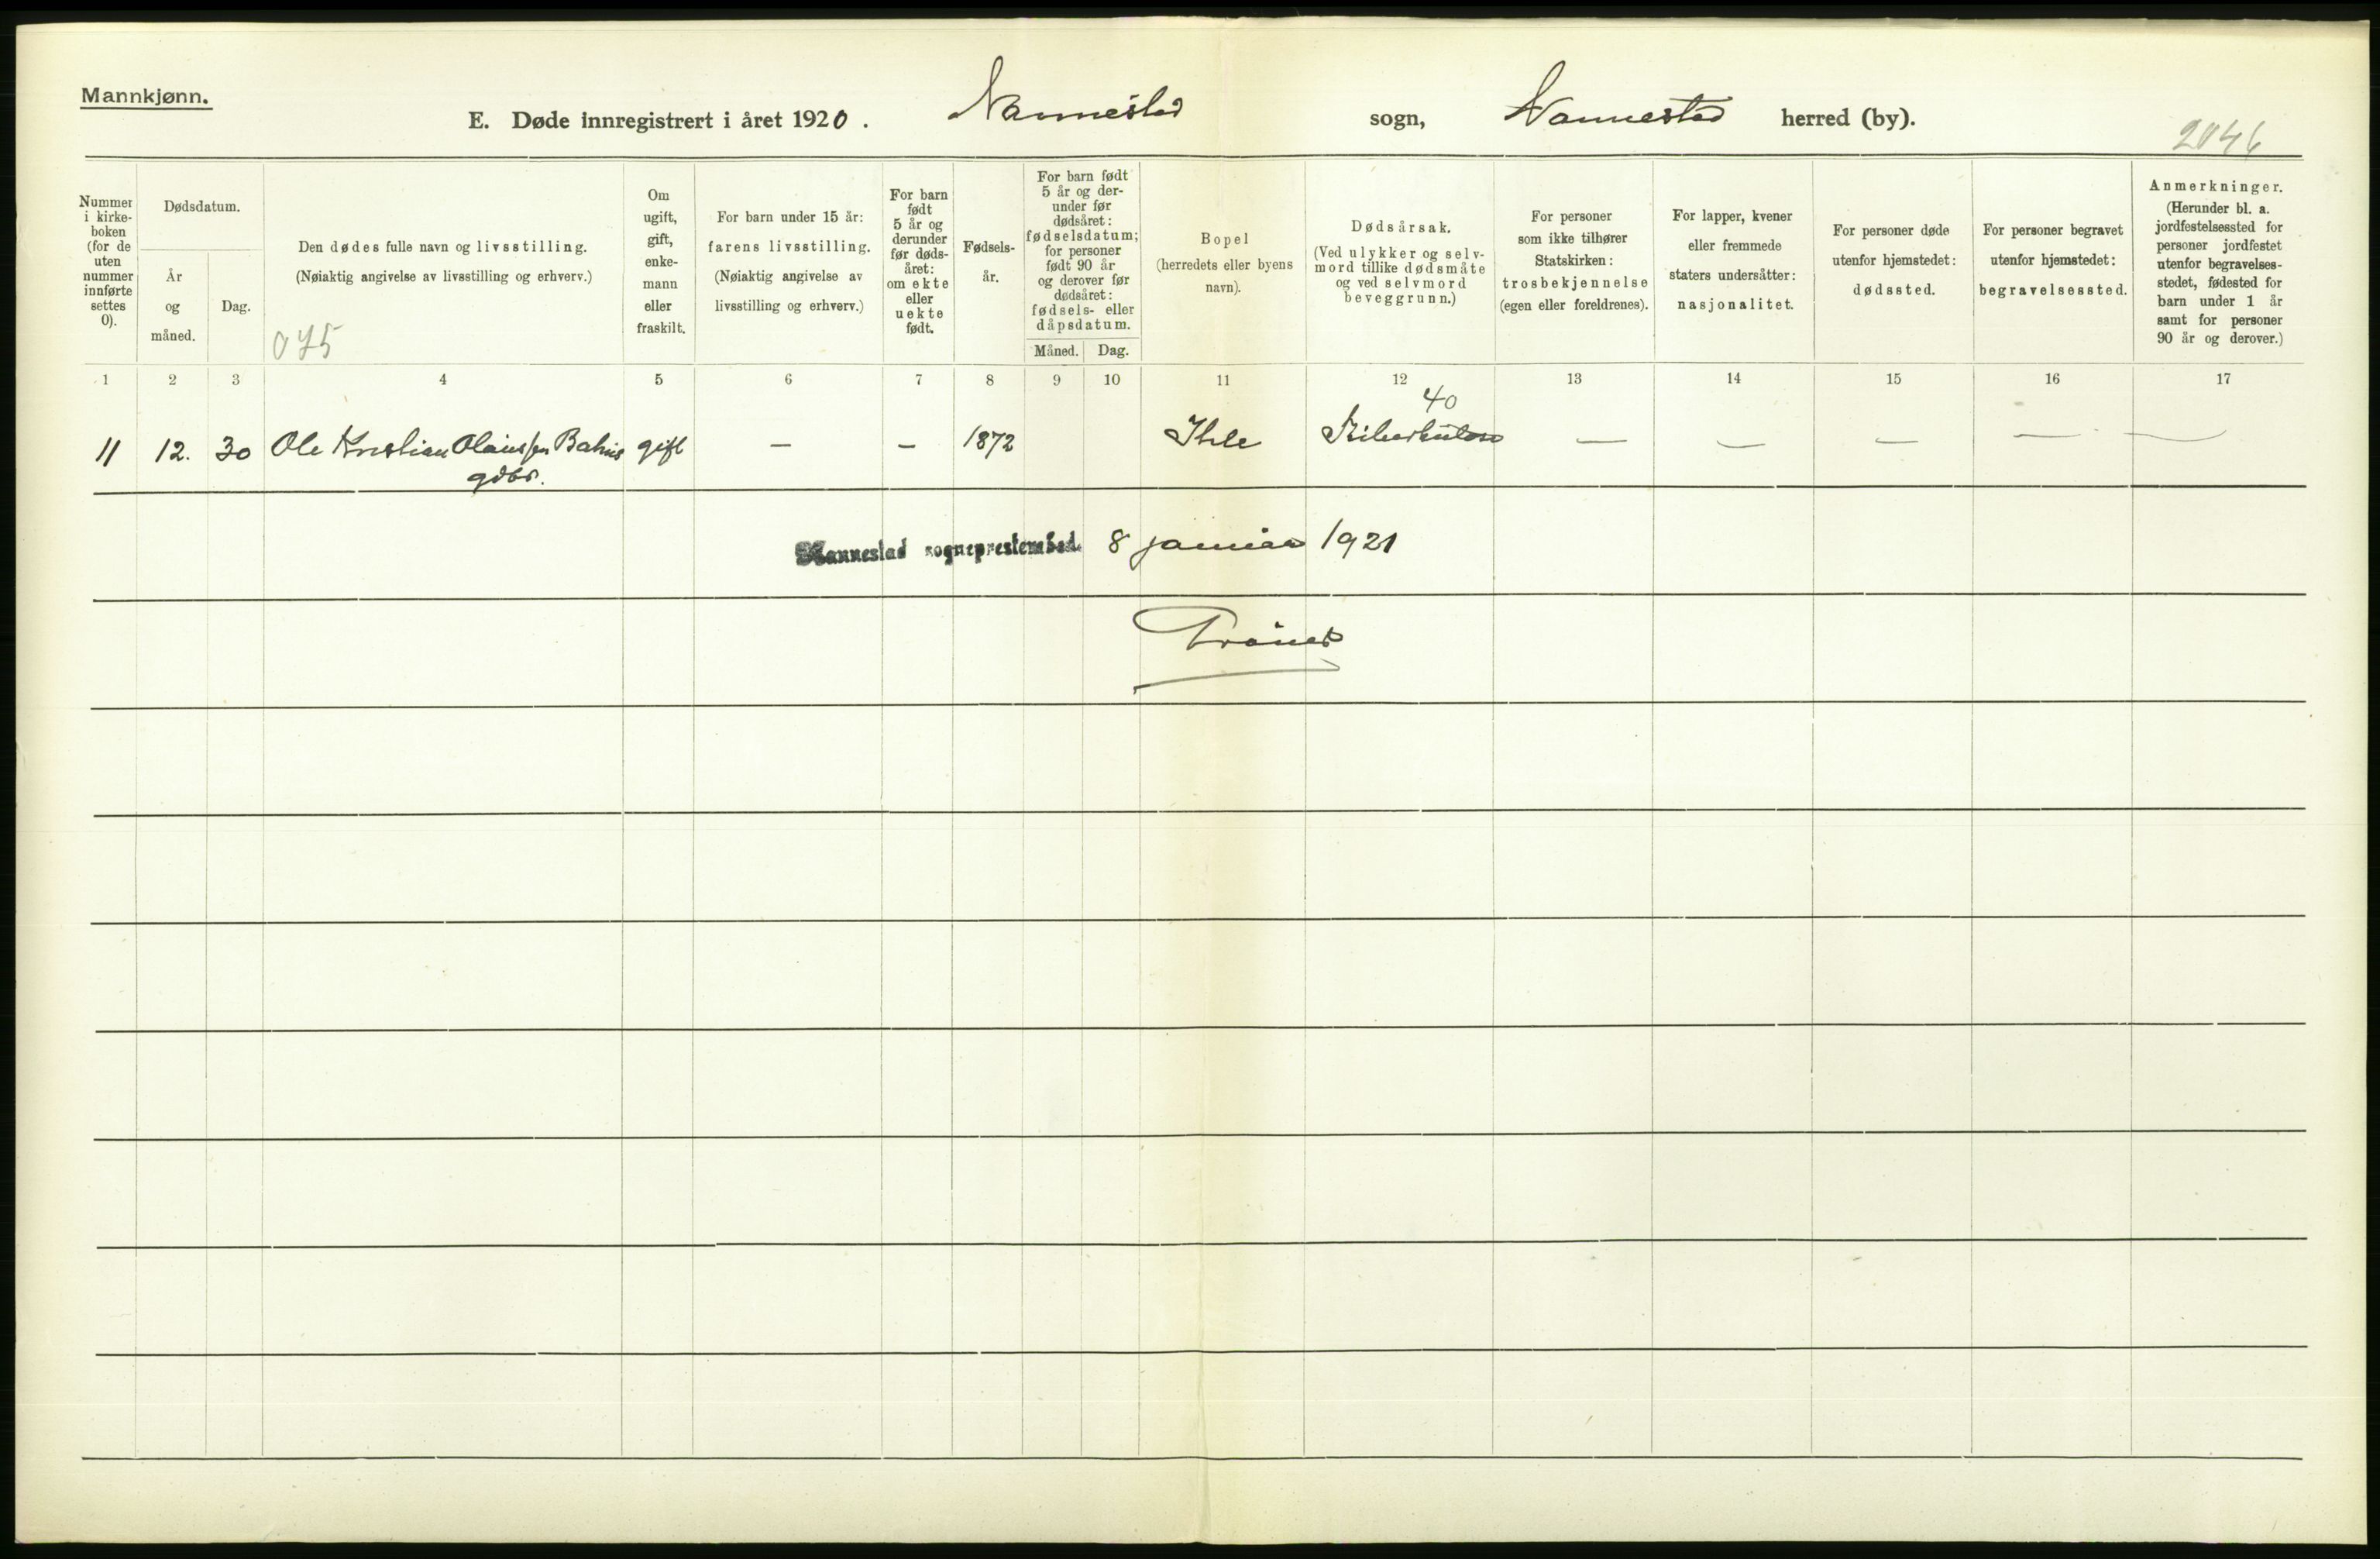 Mannkjønn.
E. Døde innregistrert i året 1920. Nannestad sogn, Nannestad herred (by).
2046
Nummer i kirke-
boken
(for de
uten
nummer
innførte
settes
0).
Dødsdatum.
År
og
måned.
Dag.
Den dødes fulle navn og livsstilling.
(Nøiaktig angivelse av livsstilling og erhverv.)
075
Om
ugift,
gift,
enke-
mann
eller
fraskilt.
For barn under 15 år:
farens livsstilling.
(Nøiaktig angivelse av
livsstilling og erhverv.)
For barn
født
5 år og
derunder
før døds-
året:
om ekte
eller
uekte
født.
Fødsels-
år.
For barn født
5 år og der-
under før
dødsåret:
fødselsdatum;
for personer
født 90 år
og derover før
dødsåret:
fødsels- eller
dåpsdatum.
Måned. Dag.
Bopel
(herredets eller byens
navn).
Dødsårsak.
(Ved ulykker og selv-
mord tillike dødsmåte
og ved selvmord
beveggrunn.)
For personer
som ikke tilhører
Statskirken:
trosbekjennelse
(egen eller foreldrenes).
For lapper, kvener
eller fremmede
staters undersåtter:
nasjonalitet.
For personer døde
utenfor hjemstedet:
dødssted.
For personer begravet
utenfor hjemstedet:
begravelsessted.
Anmerkninger.
(Herunder bl. a.
jordfestelsessted for
personer jordfestet
utenfor begravelses-
stedet, fødested for
barn under 1 år
samt for personer
90 år og derover.)
1 2 3 4 5 6 7 8 9 10 11 12 13 14 15 16 17
40
11 12. 30 Ole Kristian Olaussen gift — — 1872 Ihle — — — — —
gdbr.
Nannestad sogneprestembed. 8 januar 1921